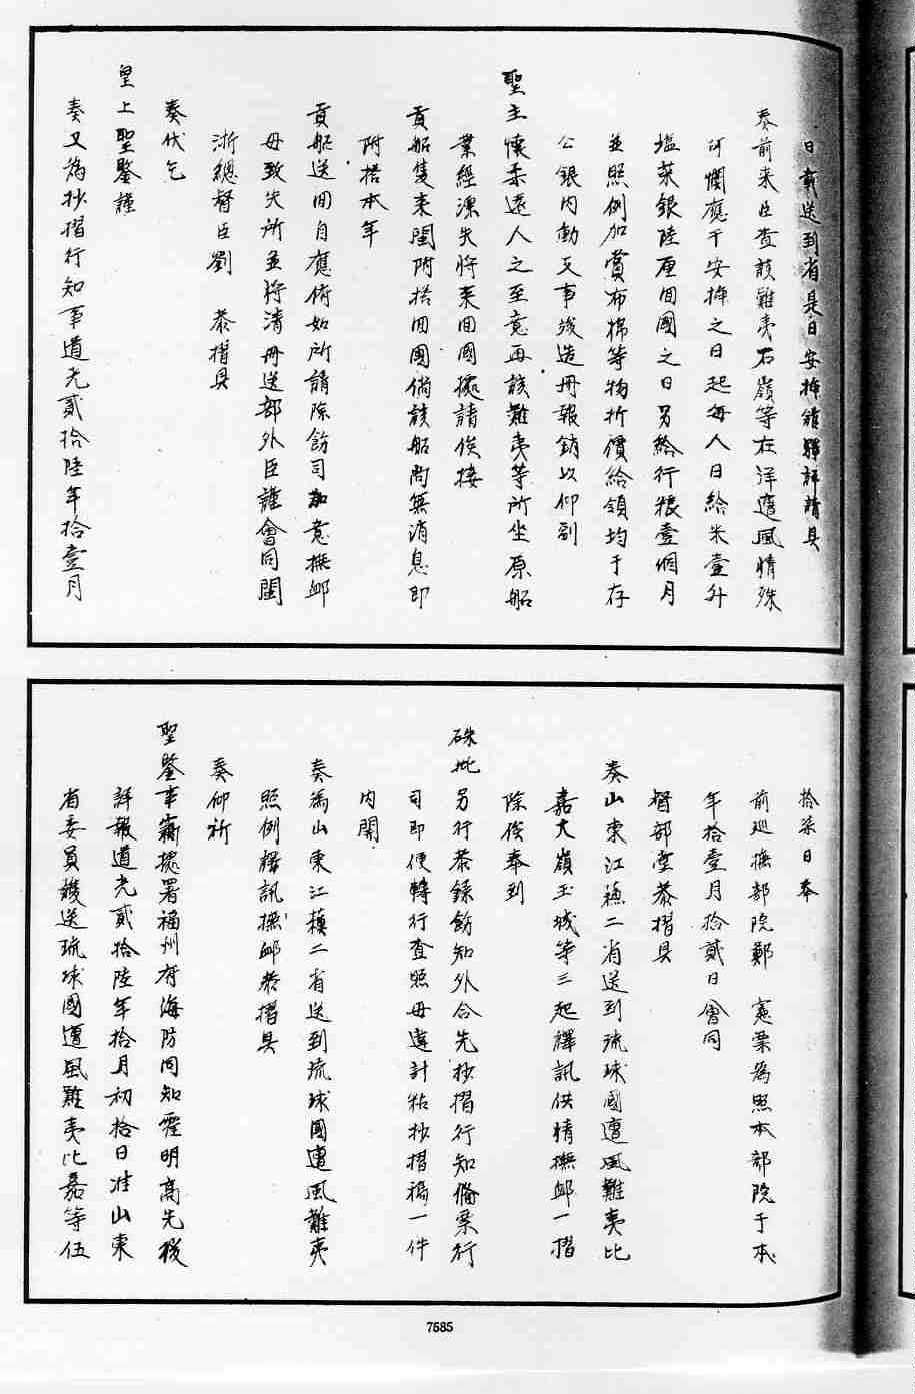 日護送到省是日安揷館驛詳請具
奏前來臣查該難夷石嶺等在洋遭風情殊
可憫應于安揷之日起每人日給米壹升
塩菜銀陸厘回國之日另給行粮壹個月
並照例加賞布棉等物折價給領均于存
公銀內動支事竣造冊報銷以仰副
聖主懷柔遠人之至意再該難夷等所坐原船
業經漂失將來回國據請俟接
貢船隻來閩附搭回國倘該船尚無消息即
附搭本年
貢船送回自應俯如所請除飭司加意撫卹
毋致失所並將清冊送部外臣謹會同閩
浙總督臣劉 恭摺具
奏伏乞
皇上聖鑒謹
奏又為抄摺行知事道光貳拾陸年拾壹月
拾柒日奉
前巡撫部院鄭 憲票為照本部院于本
年拾壹月拾貳日會同
督部堂恭摺具
奏山東江蘓二省送到琉球國遭風難夷比
嘉大嶺玉城等三起譯訊供情撫卹一摺
除俟奉到
硃批另行恭錄飭知外合先抄摺行知備案行
司即便轉行查照毋違計粘抄摺稿一件
內開
奏為山東江蘓二省送到琉球國遭風難夷
照例譯訊撫卹恭摺具
奏仰祈
聖鑒事竊據署福州府海防同知霍明高先後
詳報道光貳拾陸年拾月初拾日准山東
省委員護送琉球國遭風難夷比嘉等伍
7585